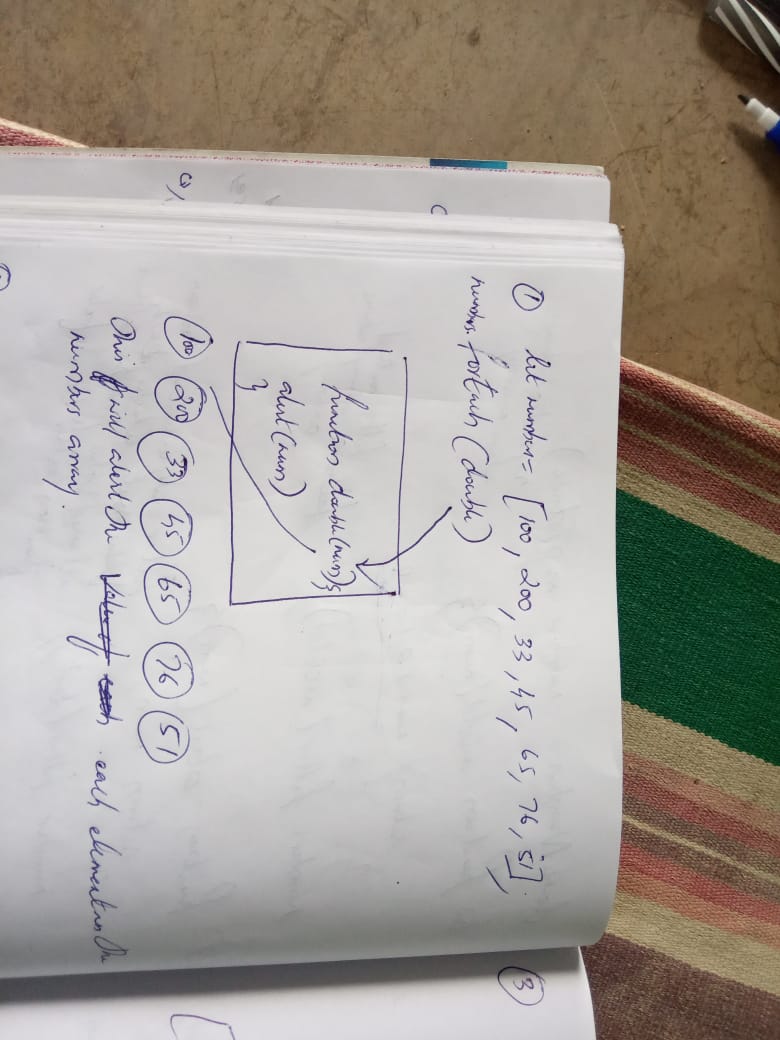 ① let numbers = [100, 200, 33, 45, 65, 76, 51],
numbers.forEach (double)
function double(num) {
alert(num)
}
100 200 33 45 65 76 51
This will alert the each element in the
numbers array.
3